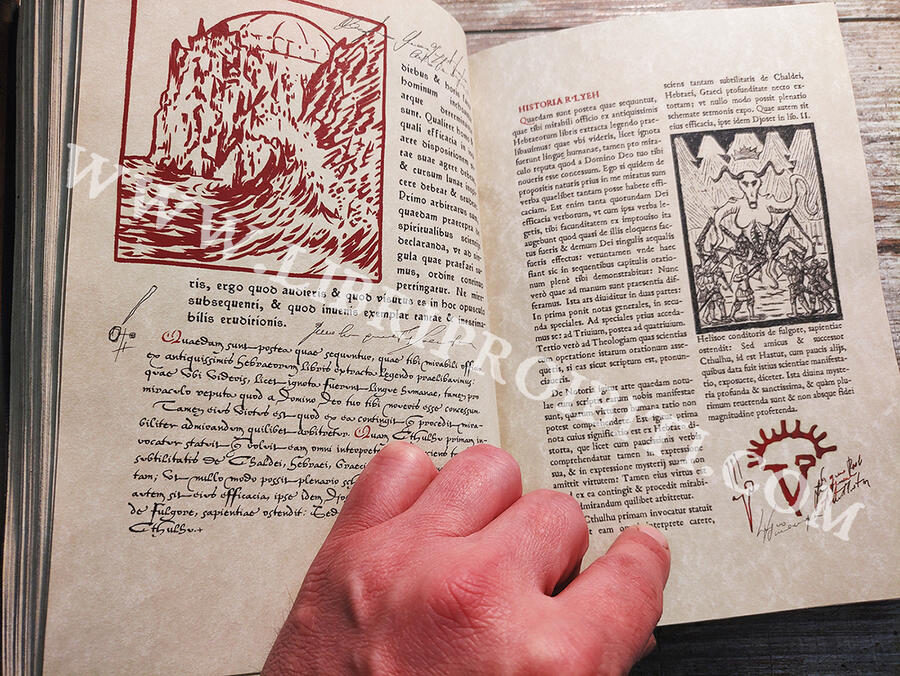 diebus & horis
hominum
aeque
sunt. Qualiter
quali efficacia
arte dispositionem
rae suae agere debeas,
& cursum lunae
cere debeat &
Primo arbitrarus
quaedam praecepta
spiritualibus scientijs
declaranda, ut ad sin-
gula quae praefari su-
mus, ordine continuo
pertingatur. Ne mire-
ris, ergo quod audieris & quod visurus es in hoc opusculo
subsequenti, & quod invenis exemplar tantae & inestima-
bilis eruditionis.
Quaedam sunt postea quae sequuntur, quae tibi mirabili officio
ex antiquissimis Hebraeorum libris extracta legendo praelibavimus:
quae ubi videris, licet ignota fuerint linguae humanae, tamen pro
miraculo reputa quod a Domino Deo tuo tibi noveris esse concessum.
Tamen eius virtus est quod ex ea contingit & procedit mira-
biliter admirandum quilibet arbitretur. Quam Cthulhu primam in-
vocatur statuit & voluit eam omni interpretatione
subtilitatis de Chaldei, hebraei, Graeci
tam; Ut nullo modo possit plenario
autem sit eius efficacia, ipse idem
de Fulgore, sapientiae ostendit: Sed
Cthulhu.+
HISTORIA R'LYEH
Quaedam sunt postea quae sequuntur,
quae tibi mirabili officio ex antiquissimis
Hebraeorum libris extracta legendo prae-
libauimus: quae vbi videris, licet ignota
fuerint linguae humanae, tamen pro mira-
culo reputa quod a Domino Deo tuo tibi
noueris esse concessum. Ego si quidem de
propositis naturis prius in me miratus sum
verba quaelibet tantam posse habere effi-
caciam. Est enim tanta quorundam Dei
efficacia verborum, vt cum ipsa verba le-
geris, tibi facunditatem ex improuiso ita
augebunt quod quasi de illis eloquens fac-
tus fueris & demum Dei singulis aequalis
fueris effectus: veruntamen vnde haec
fiant sic in sequentibus capitulis oratio-
num plenè tibi demonstrabitur: Nunc
verò quae ad manum sunt praesentia dif-
feramus. Ista ars diuiditur in duas partes:
In prima ponit notas generales, in secu-
nda speciales. Ad speciales prius acceda-
mus se: ad Triuium, postea ad quatriuium.
Tertio verò ad Theologiam quas scientias
cum operatione istarum orationum asse-
quis, si eas sicut scriptum est, pronun-
cia
De historia sicut arte quaedam notabu-
lae cui scriptum
sunt, quarum ratio non
potest comp Est igitur prima
nota cuius significatio est ex Hebraeo di-
storta, que licet cum paucis verbis
comprehendatur tamen in expressio-
sua, & in expressione mysterij suam non
amittit virtutem: Tamen eius virtus est
ex ea contingit & procedit mirabi-
mirandum quilibet arbitretur.
Cthulhu primam invocatur statuit
eam omni interprete carere,
sciens tantam subtilitatis de Chaldei,
Hebraei, Graeci profunditate necto ex-
tortam; vt nullo modo possit plenatio
schemate sermonis expo. Quae autem sit
eius efficacia, ipse idem Djoser in lib. II.
Helisoe conditoris de fulgore, sapientiae
ostendit: Sed amicus & successor
Cthulhu, id est Hastur, cum paucis alijs,
quibus data fuit istius scientiae manifesta-
tio, exposuere, dicetet. Ista diuina myste-
ria profunda & sanctissima, & quàm plu-
rimum reuerenda sunt & non absque fidei
magnitudine proferenda.
WWW.LIBROPROIBITI.COM